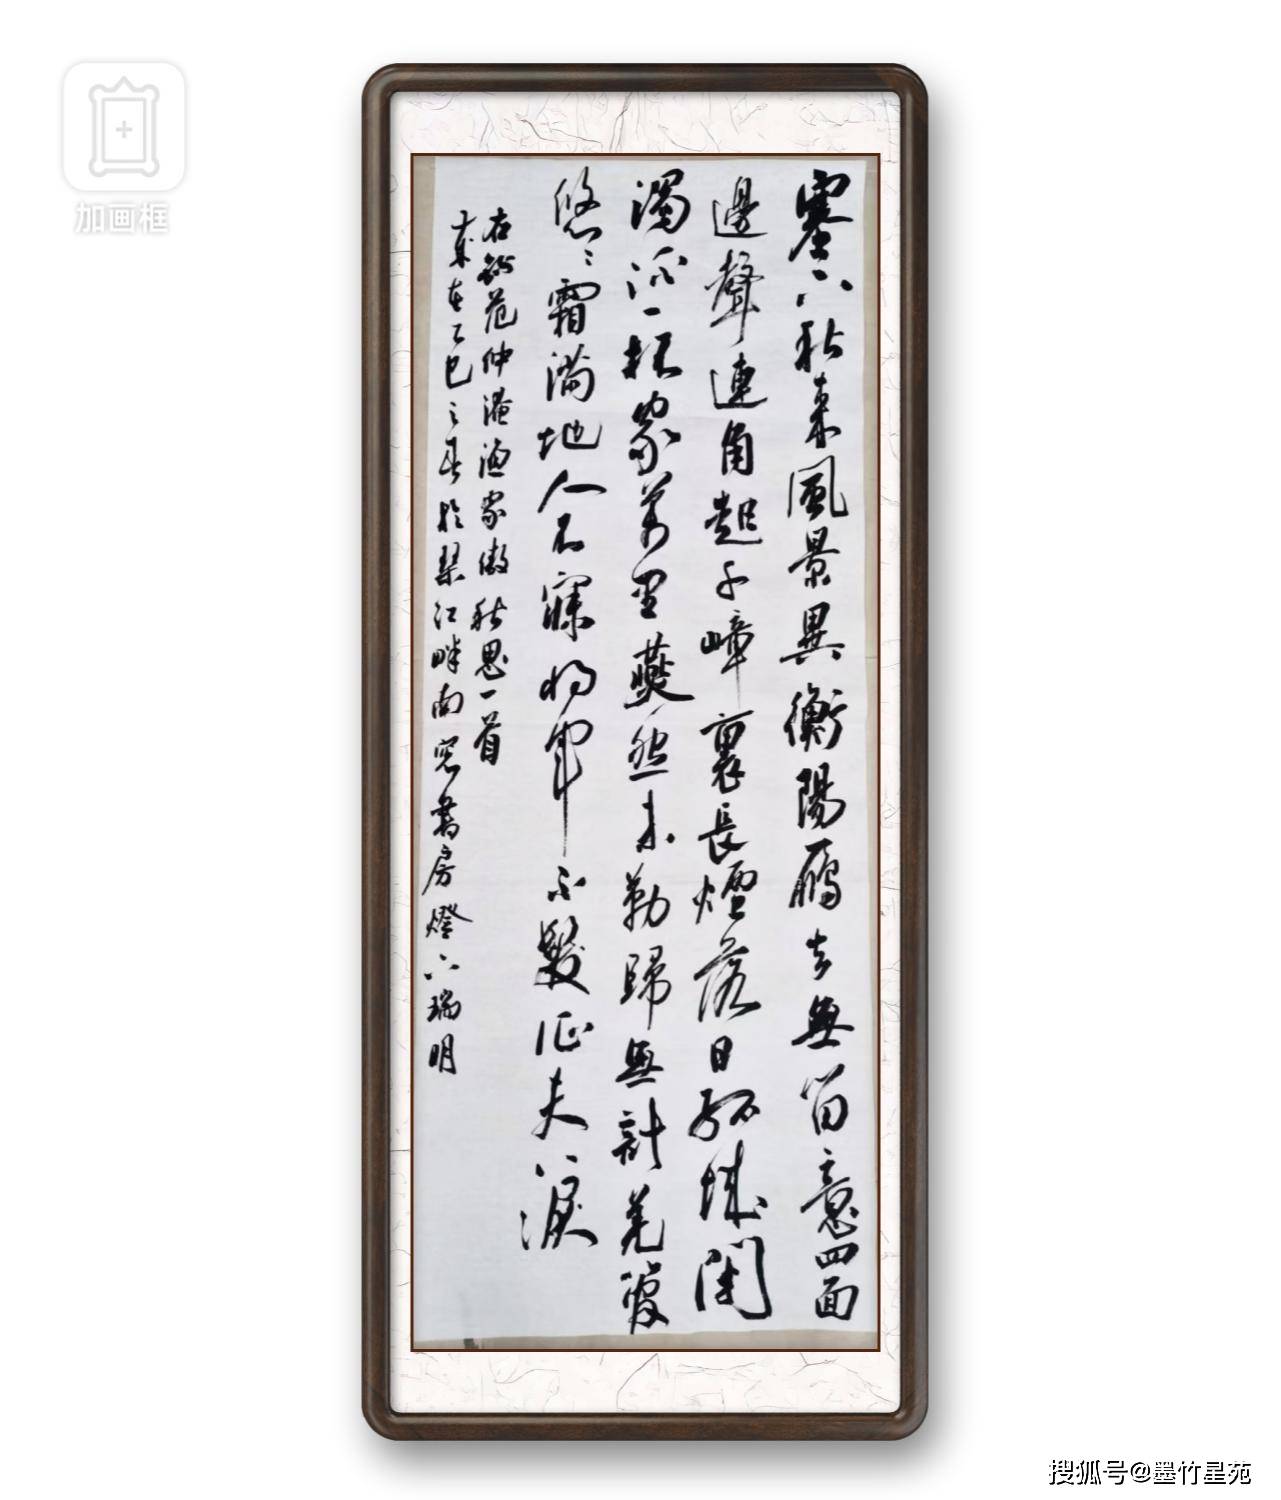 加画框
塞下秋來風景異衡陽鴈去無留意四面
邊聲連角起千嶂裏長煙落日孤城閉
濁酒一杯家萬里燕然未勒歸無計羌管
悠〻霜滿地人不寐將軍白髮征夫淚
右錄范仲淹漁家傲秋思一首
歲在乙巳之春於琴江畔南窗書房燈下瑞明
搜狐号@墨竹星苑